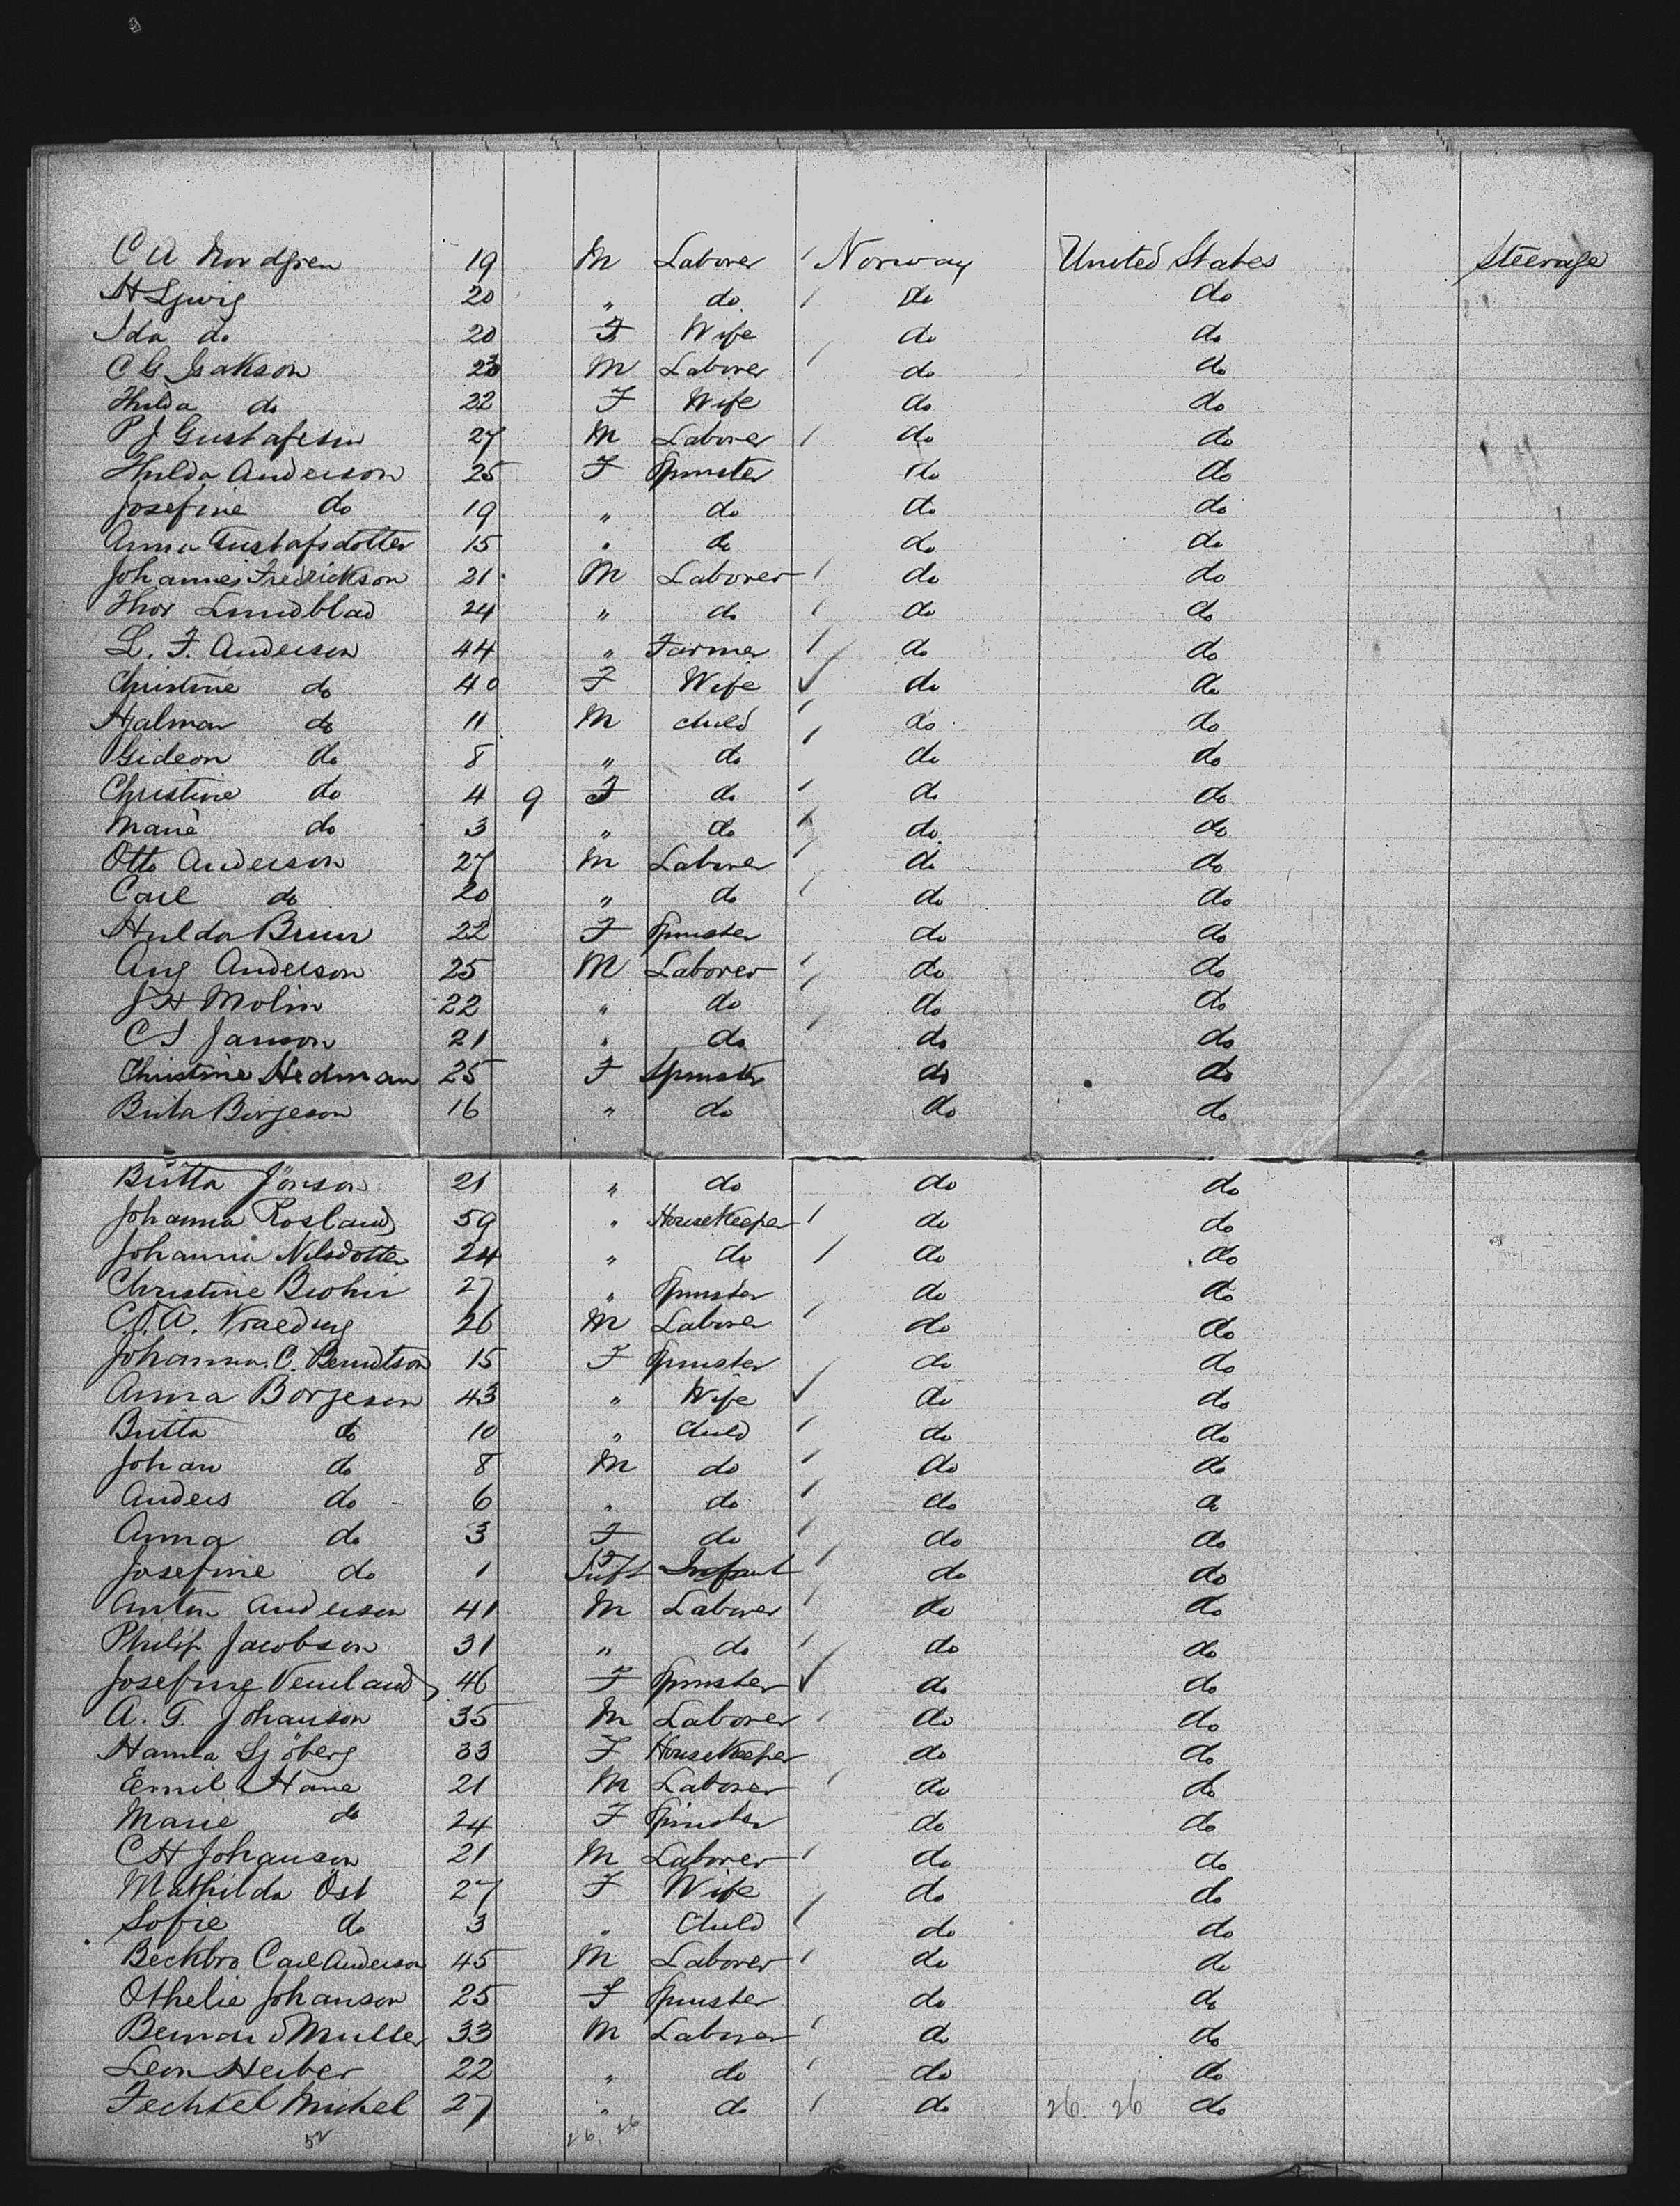 C A Nordgren 19 M Laborer Norway United States Steerage
H Ljwig 20 " do do do
Ida do 20 F Wife do do
C G Isakson 23 M Laborer do do
Hilda do 22 F Wife do do
P J Gustafeson 27 M Laborer do do
Hulda Anderson 25 F Spinster do do
Josefine do 19 " do do do
Anna Gustafsdotter 15 " do do do
Johannes Fredrickson 21 M Laborer do do
Thor Lundblad 24 " do do do
L. F. Anderson 44 " Farmer do do
Christine do 40 F Wife do do
Hjalmar do 11 M child do do
Gideon do 8 " do do do
Christine do 4 9 F do do do
Marie do 3 " do do do
Otto Anderson 27 M Laborer do do
Carl do 20 " do do do
Hulda Brun 22 F Spinster do do
Aug Anderson 25 M Laborer do do
J H Molin 22 " do do do
C S Janson 21 " do do do
Christine Hedman 25 F Spinster do do
Brita Borjeson 16 " do do do
Britta Jönson 21 " do do do
Johanna Rosland 59 " Housekeeper do do
Johanna Nilsdotter 24 " do do do
Christine 27 " Spinster do do
C. J. A. 26 M Laborer do do
Johanna. C. Berndtson 15 F Spinster do do
Anna Borjeson 43 " Wife do do
Britta do 10 " Child do do
Johan do 8 M do do do
Anders do 6 " do do do
Anna do 3 F do do do
Josefine do 1 Inft Infant do do
Anton Anderson 41 M Laborer do do
Philip Jacobson 31 " do do do
Josefine Vemland 46 F Spinster do do
A. G. Johanson 35 M Laborer do do
Hanna Sjöberg 33 F Housekeeper do do
Emil Hane 21 M Laborer do do
Marie do 24 F Spinster do do
C H Johanson 21 M Laborer do do
Mathilda Öst 27 F Wife do do
Sofie do 3 " Child do do
Beckbro Carl Anderson 45 M Laborer do do
Othelie Johanson 25 F Spinster do do
Bernard Muller 33 M Laborer do do
Leon Heiber 22 " do do do
Fechtel Michel 27 " do do 26. 26 do
52 26. 26